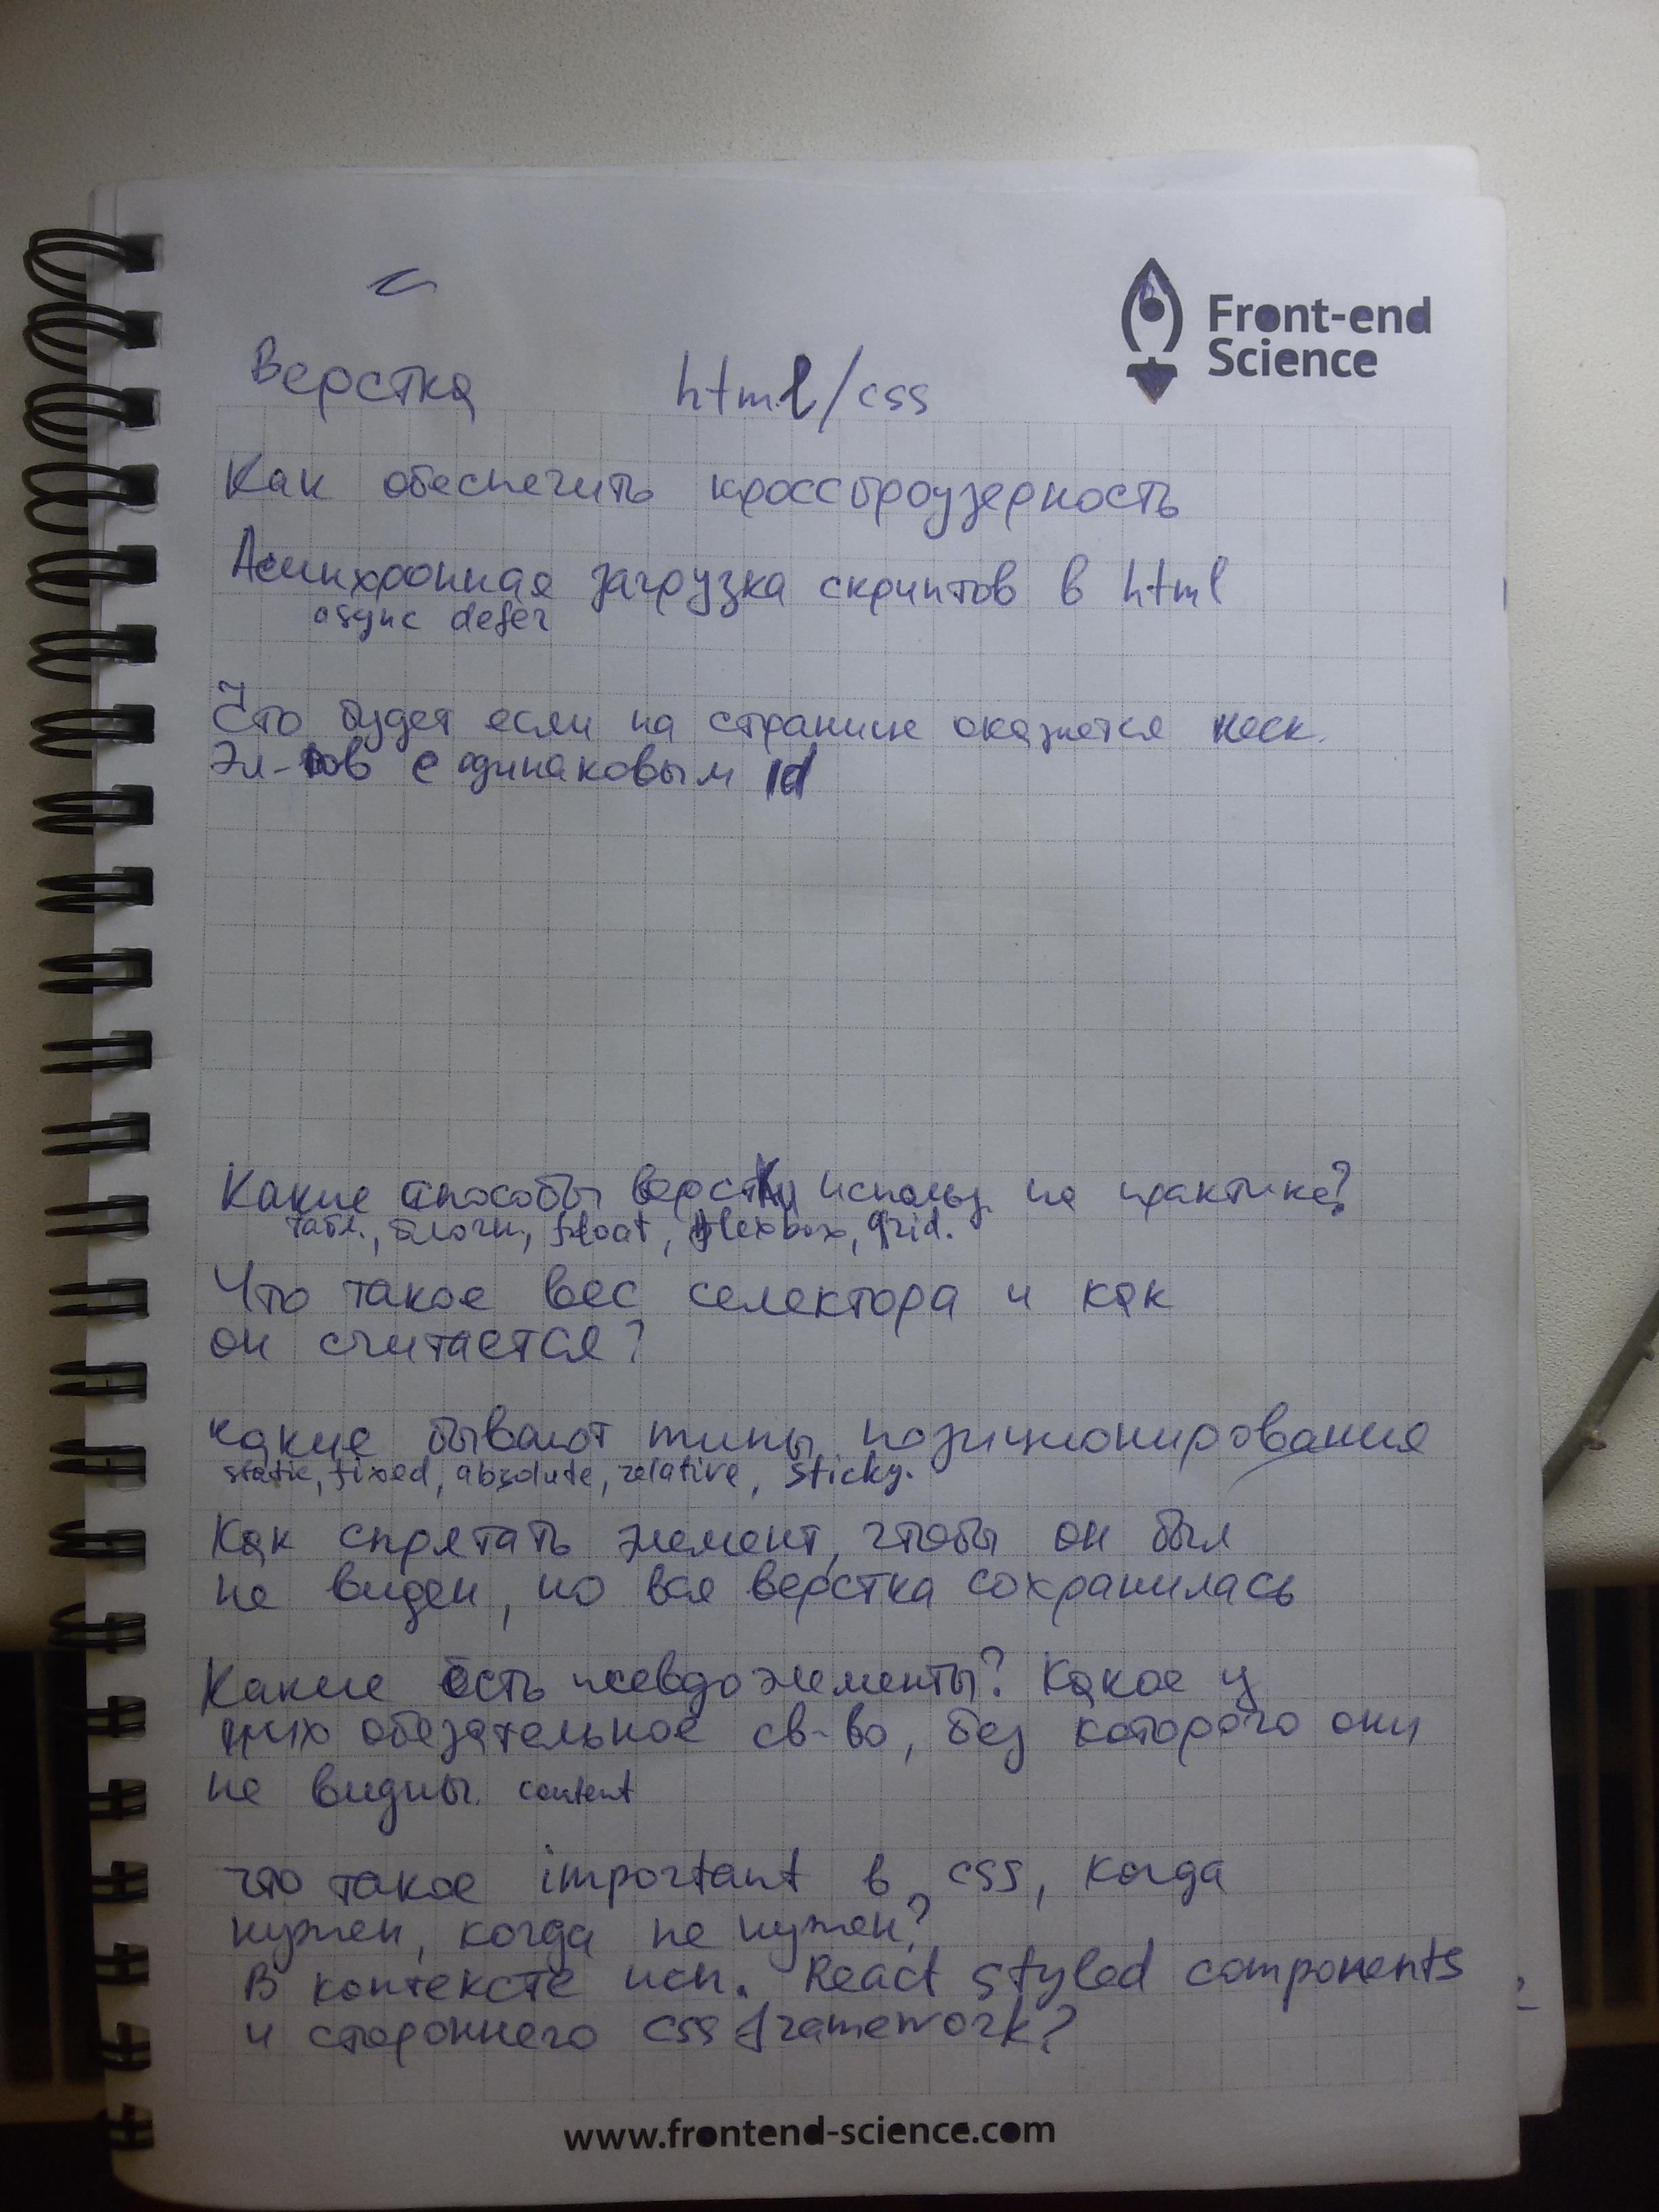 Front-end
Science
Верстка html/css
Как обеспечить кроссброузерность
Асинхронная загрузка скриптов в html
async defer
Что будет если на странице окажется неск.
Эл-тов с одинаковым id
Какие способы верстки использ на практике?
табл., блочн, float, flexbox, grid.
Что такое вес селектора и как
он считается?
какие бывают типы позиционирования
static, fixed, absolute, relative, sticky.
Как спрятать элемент, чтобы он был
не виден, но вся верстка сохранилась
Какие есть псевдоэлементы? Какое у
них обязательное св-во, без которого они
не видны. content
что такое important в css, когда
нужен, когда не нужен?
В контексте исп. React styled components
и стороннего css framework?
www.frontend-science.com